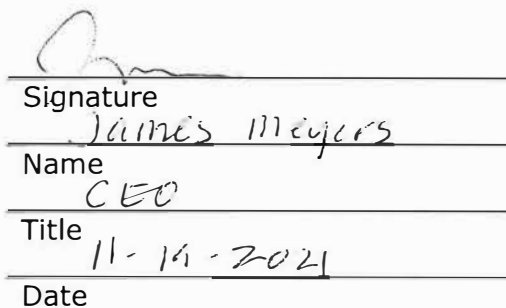 Signature
James Meyers
Name
CEO
Title
2021
Date